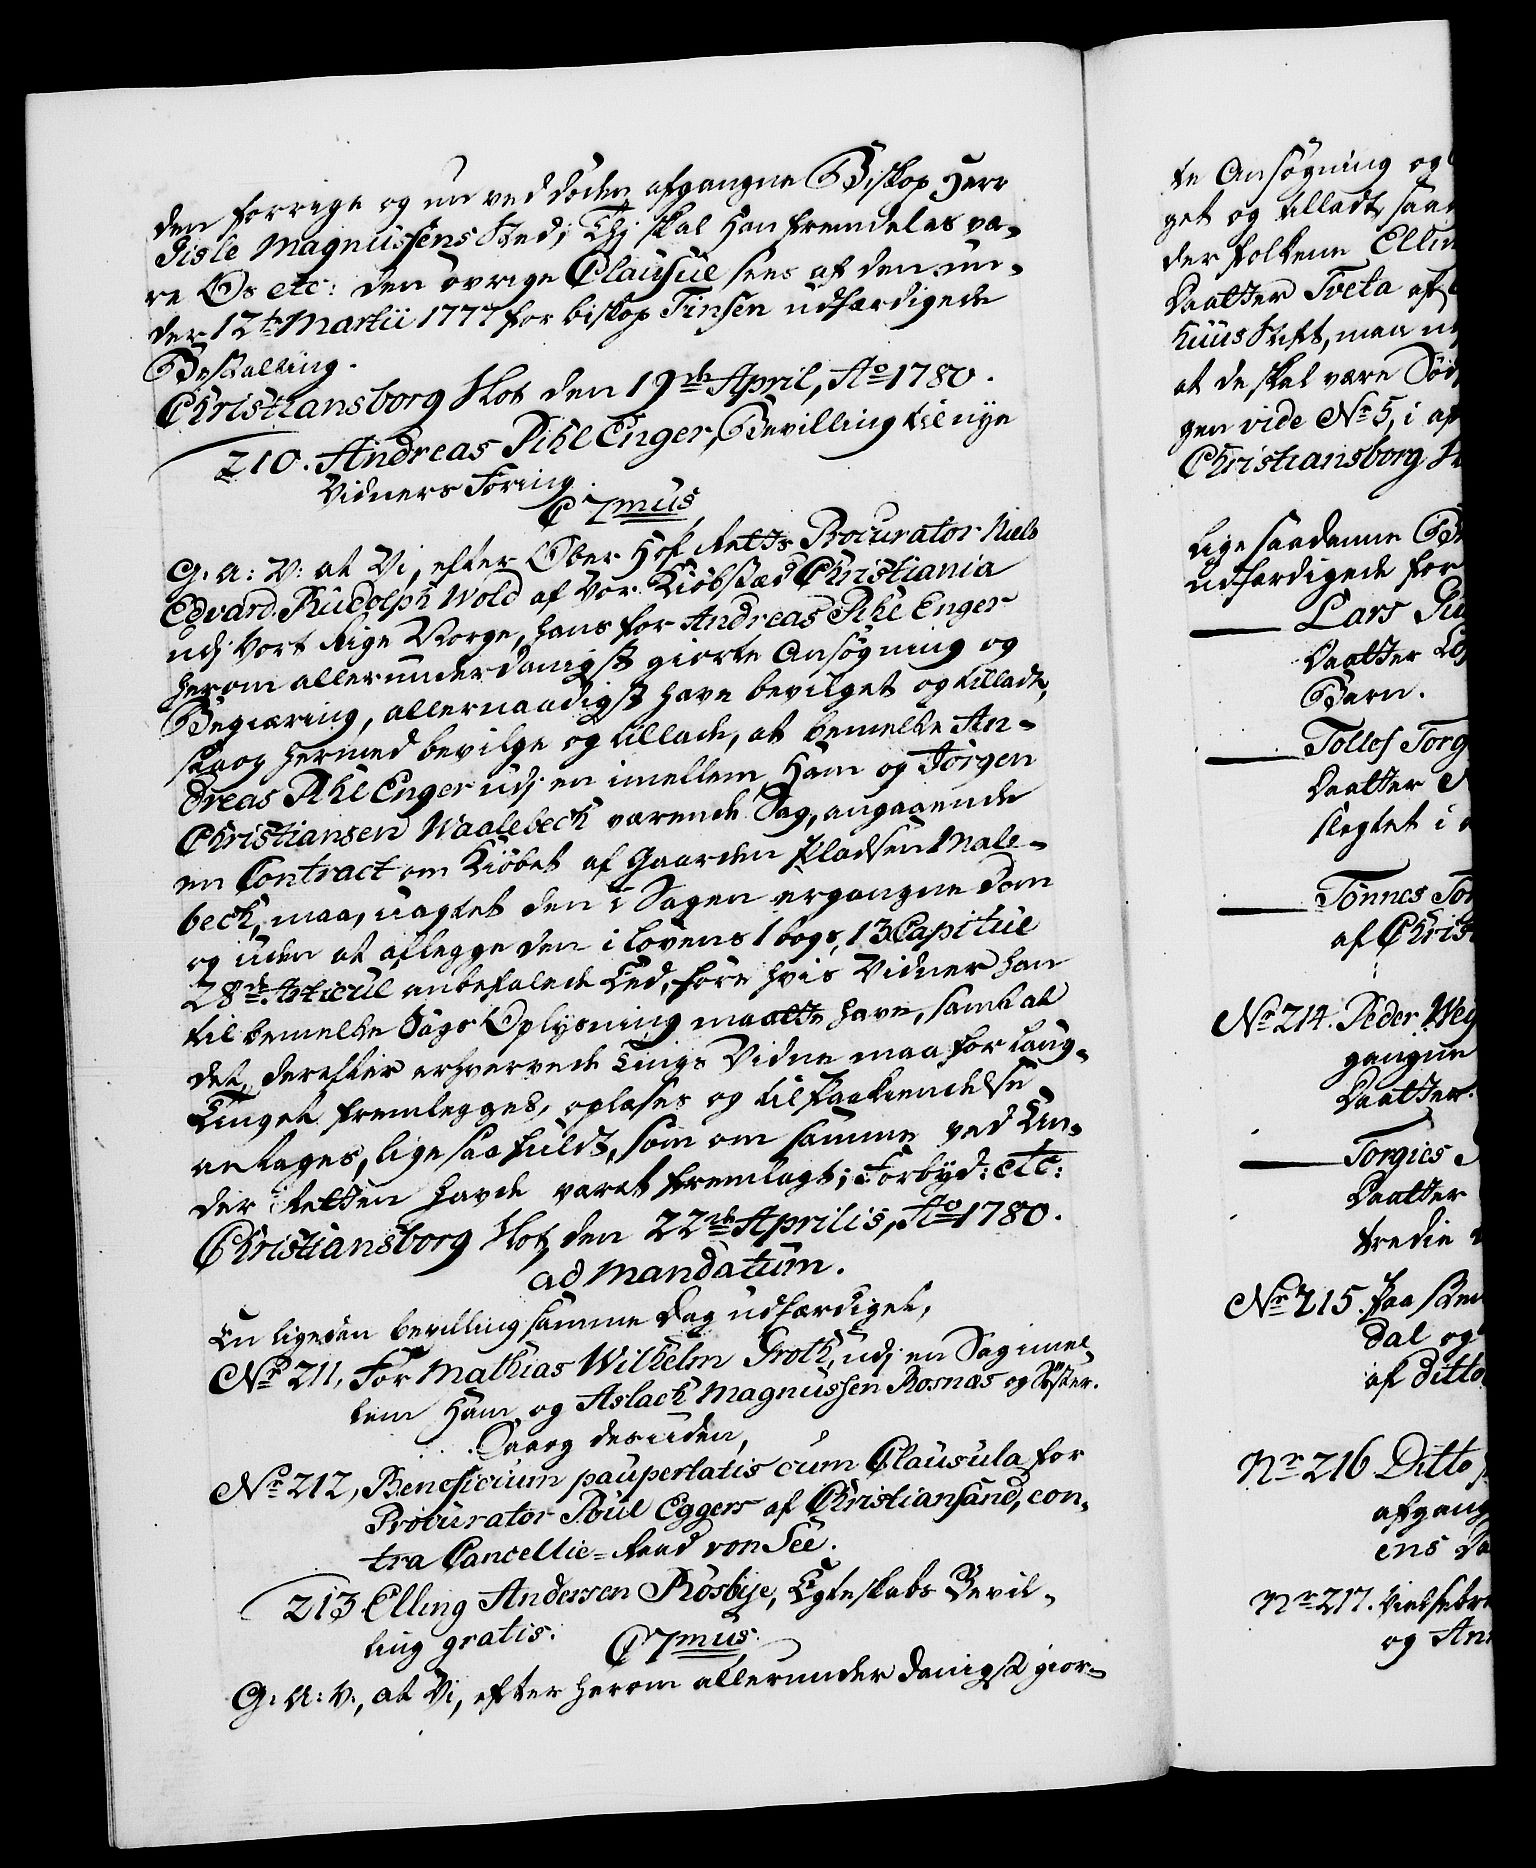 den forrige og nu ved døden afgangne Biskop Herr
Gisle Magnussens Sted; Thj skal Han fremdeles væ-
re Os etc: den øvrige Clausul sees af den un-
der 12te Martii 1777 for biskop Finsen udfærdigede
Bestalling.
Christiansborg Slot den 19de April, Ao 1780.
210. Andreas Pihl Enger, Bevilling til nye
Vidners Føring.
C 7mus
G: A: V: at Vi, efter Ober Hof Retts Procurator Niels
Edvard Rudolph Wold af Vor Kiøbstæd Christiania
udj Vort Rige Norge, hans for Andreas Pihl Enger
herom allerunderdanigst giorte Ansøgning og
Begiæring, allernaadigst have bevilget og tilladt,
saa og hermed bevilge og tillade, at bemelte An-
dreas Pihl Enger udj en imellem Ham og Jörgen
Christiansen Waalebeck værende Sag, angaaende
en Contract om Kiöbet af Gaarden Pladsen Wale-
beck, maa, uagtet den i Sagen ergangne Dom
og uden at aflegge den i Lovens 1 bogs, 13 Capitul
28de Articul anbefalede Eed, føre hvis Vidner han
til bemelte Sags Oplysning maatte have, samt at
det, derefter erhvervede Tings Vidne maa for Laug-
Tinget fremlegges, oplæses og til Paakiendelse
antages, lige saa fuldt, som om samme ved Un-
der Retten havde været fremlagt; Forbyd: etc:
Christiansborg Slot, den 22de Aprilis, Ao 1780.
ad Mandatum.
En ligesaa bevilling samme Dag udfærdiget,
No 211, For Mathias Wilhelm Groth, udj en Sag imel-
lem Ham og Aslack Magnussen Rosnæs og Søster.
Saa og desuden,
No 212, Beneficium paupertatis cum Clausula for
Procurator Poul Eggers af Christiansand, con-
tra Cancellie-Raad von See.
213 Elling Andersen Rösbye, Egteskabs Bevil-
ling gratis.
C 7mus.
G: A: V., at Vi, efter herom allerunderdanigst gior-
te Ansøgning og
get og tilladt, saa
der folkene Ellin
Daatter Iveta af
huus Stift, maa
at de skal være
gen vide No 5, i
Christiansborg
Lige saadanne
udfærdigede for
Lars
Daatter
Barn.
Tollef Torg
Daatter
slegtet i
Tönnes
af Christ
No 214. Peder
gangne
Daatter.
Torgies
Daatter
tredie
No 215. Paa
dal og
af ditto
No 216 Ditto
afgang
ens
No 217.
og